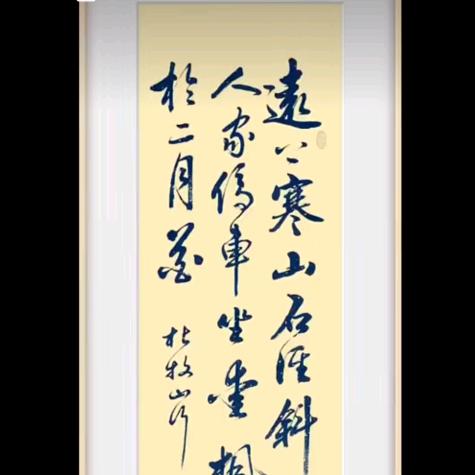 遠上寒山石径斜
人家停車坐愛楓
於二月花
杜牧山行